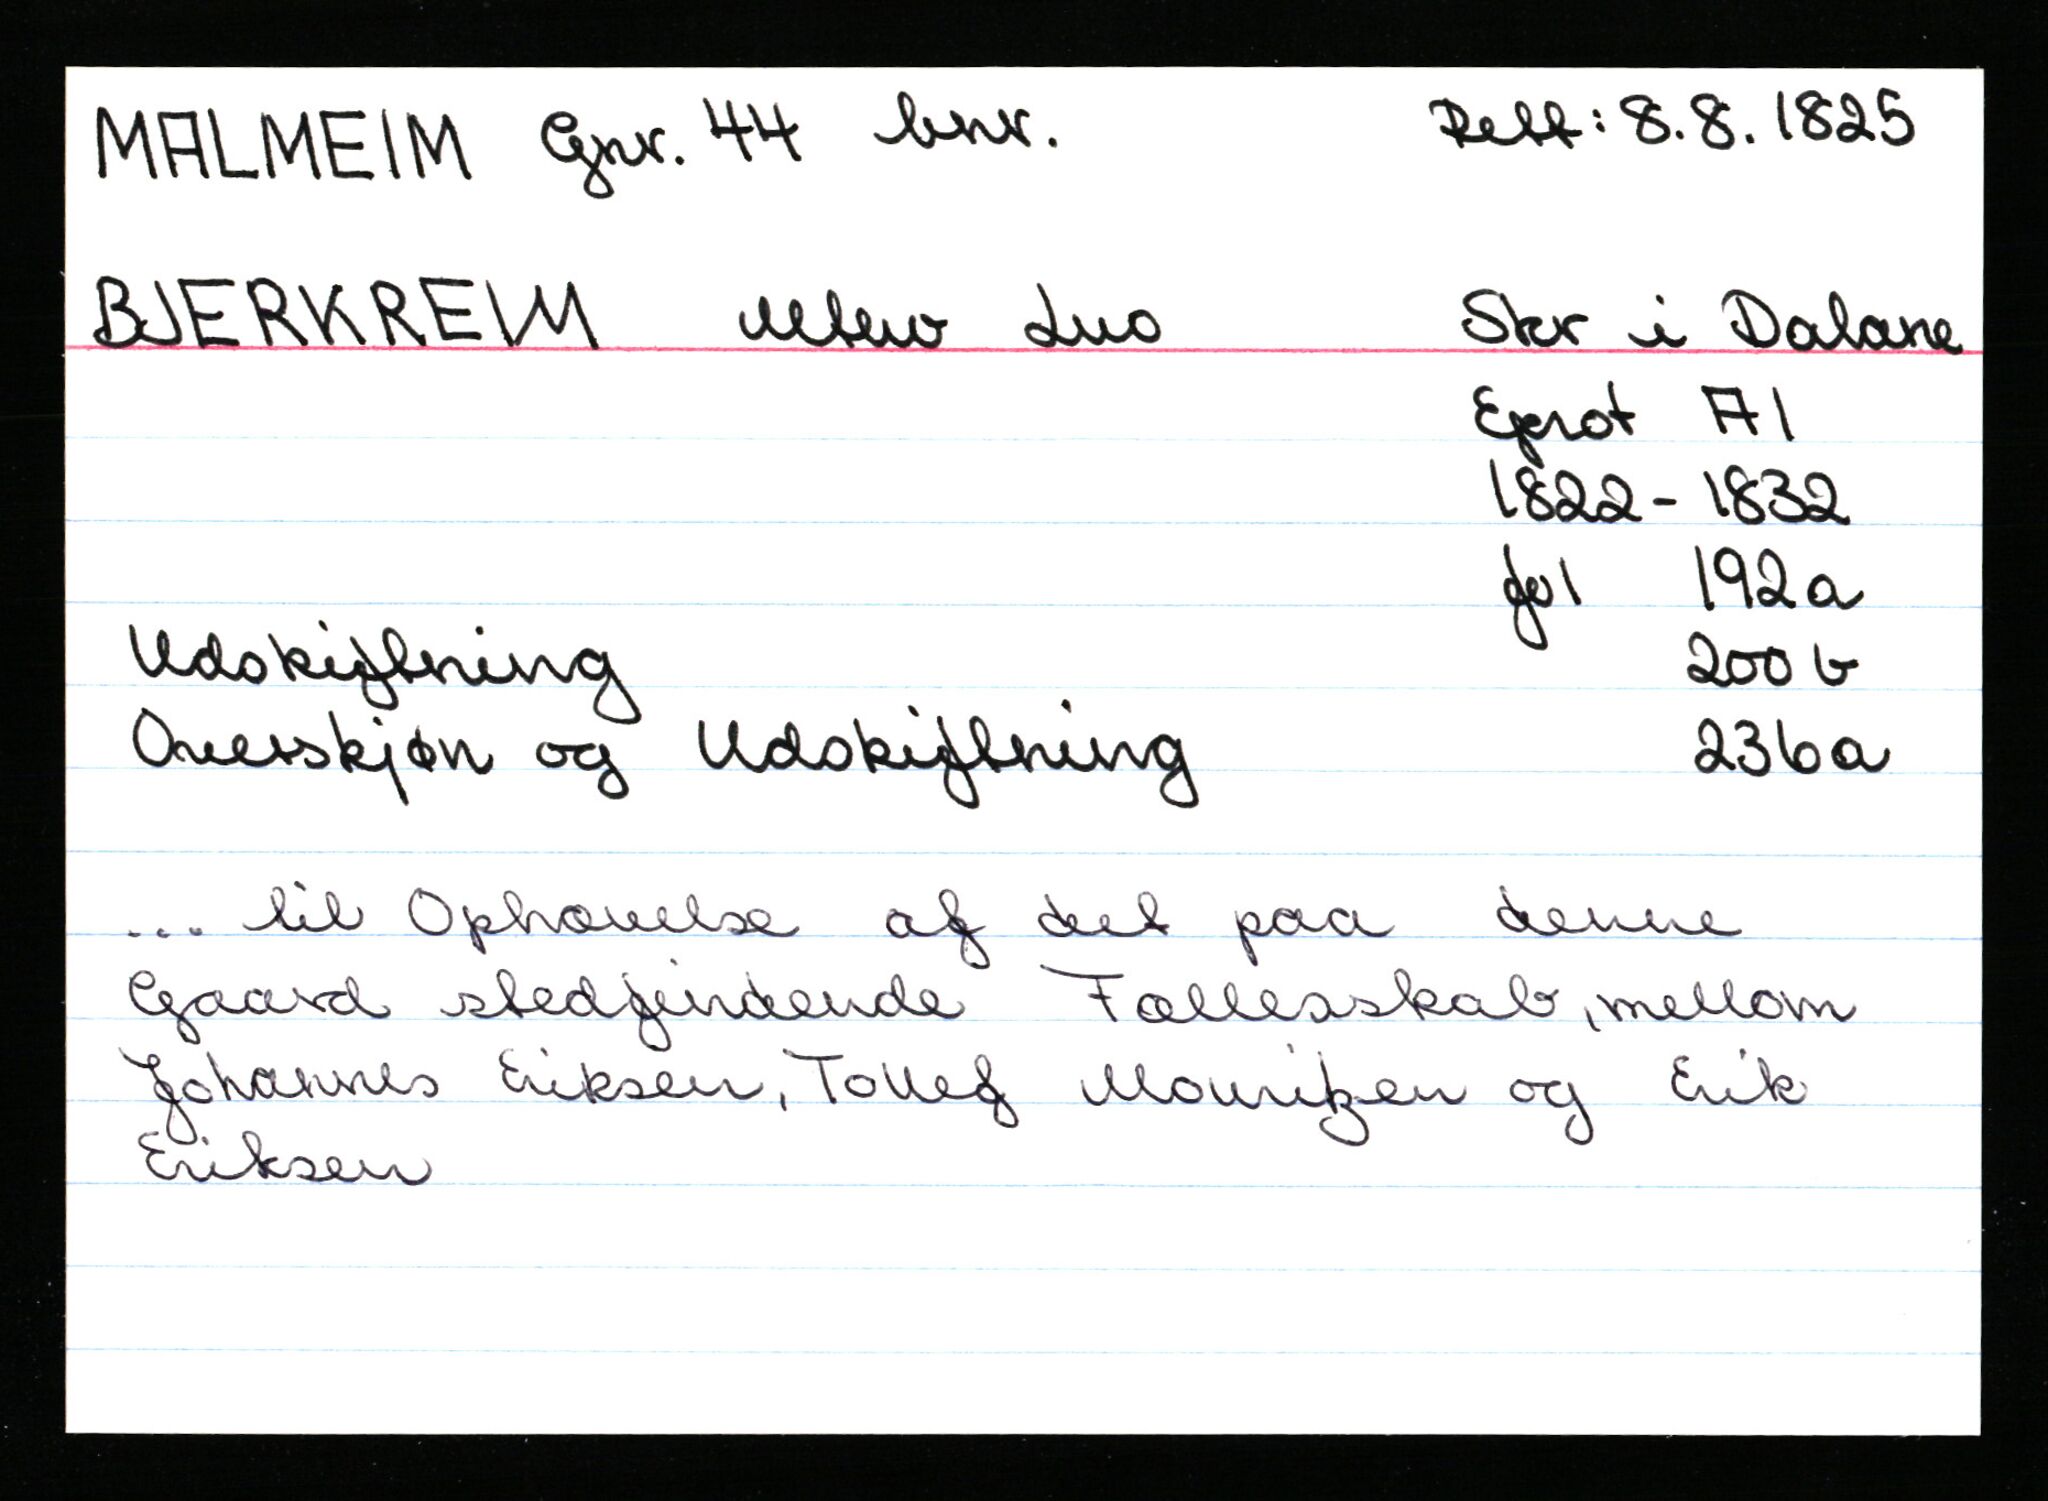 MALMEIM Gnr. 44 bnr. Rett: 8.8.1825
BJERKREIM Utew Luo Skr i Dalane
Eprot A1
1822 - 1832
fol 192a
Udskiftning 200b
Overskjøn og Udskiftning 236a
... til Ophævelse af det paa denne
Gaard stedfindende Fællesskab, mellom
Johannes Eriksen, Tollef Mouritzen og Erik
Eriksen